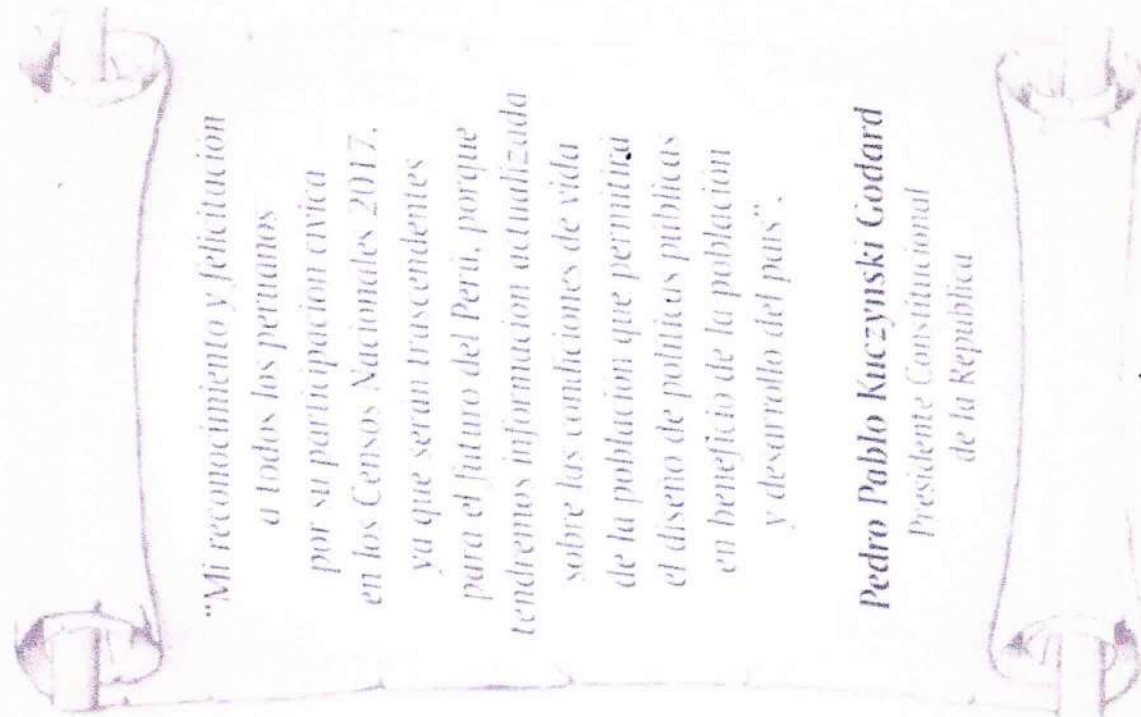 "Mi reconocimiento y felicitación
a todos los peruanos
por su participación cívica
en los Censos Nacionales 2017,
ya que serán trascendentes
para el futuro del Perú, porque
tendremos información actualizada
sobre las condiciones de vida
de la población que permitirá
el diseño de políticas públicas
en beneficio de la población
y desarrollo del país".
Pedro Pablo Kuczynski Godard
Presidente Constitucional
de la República